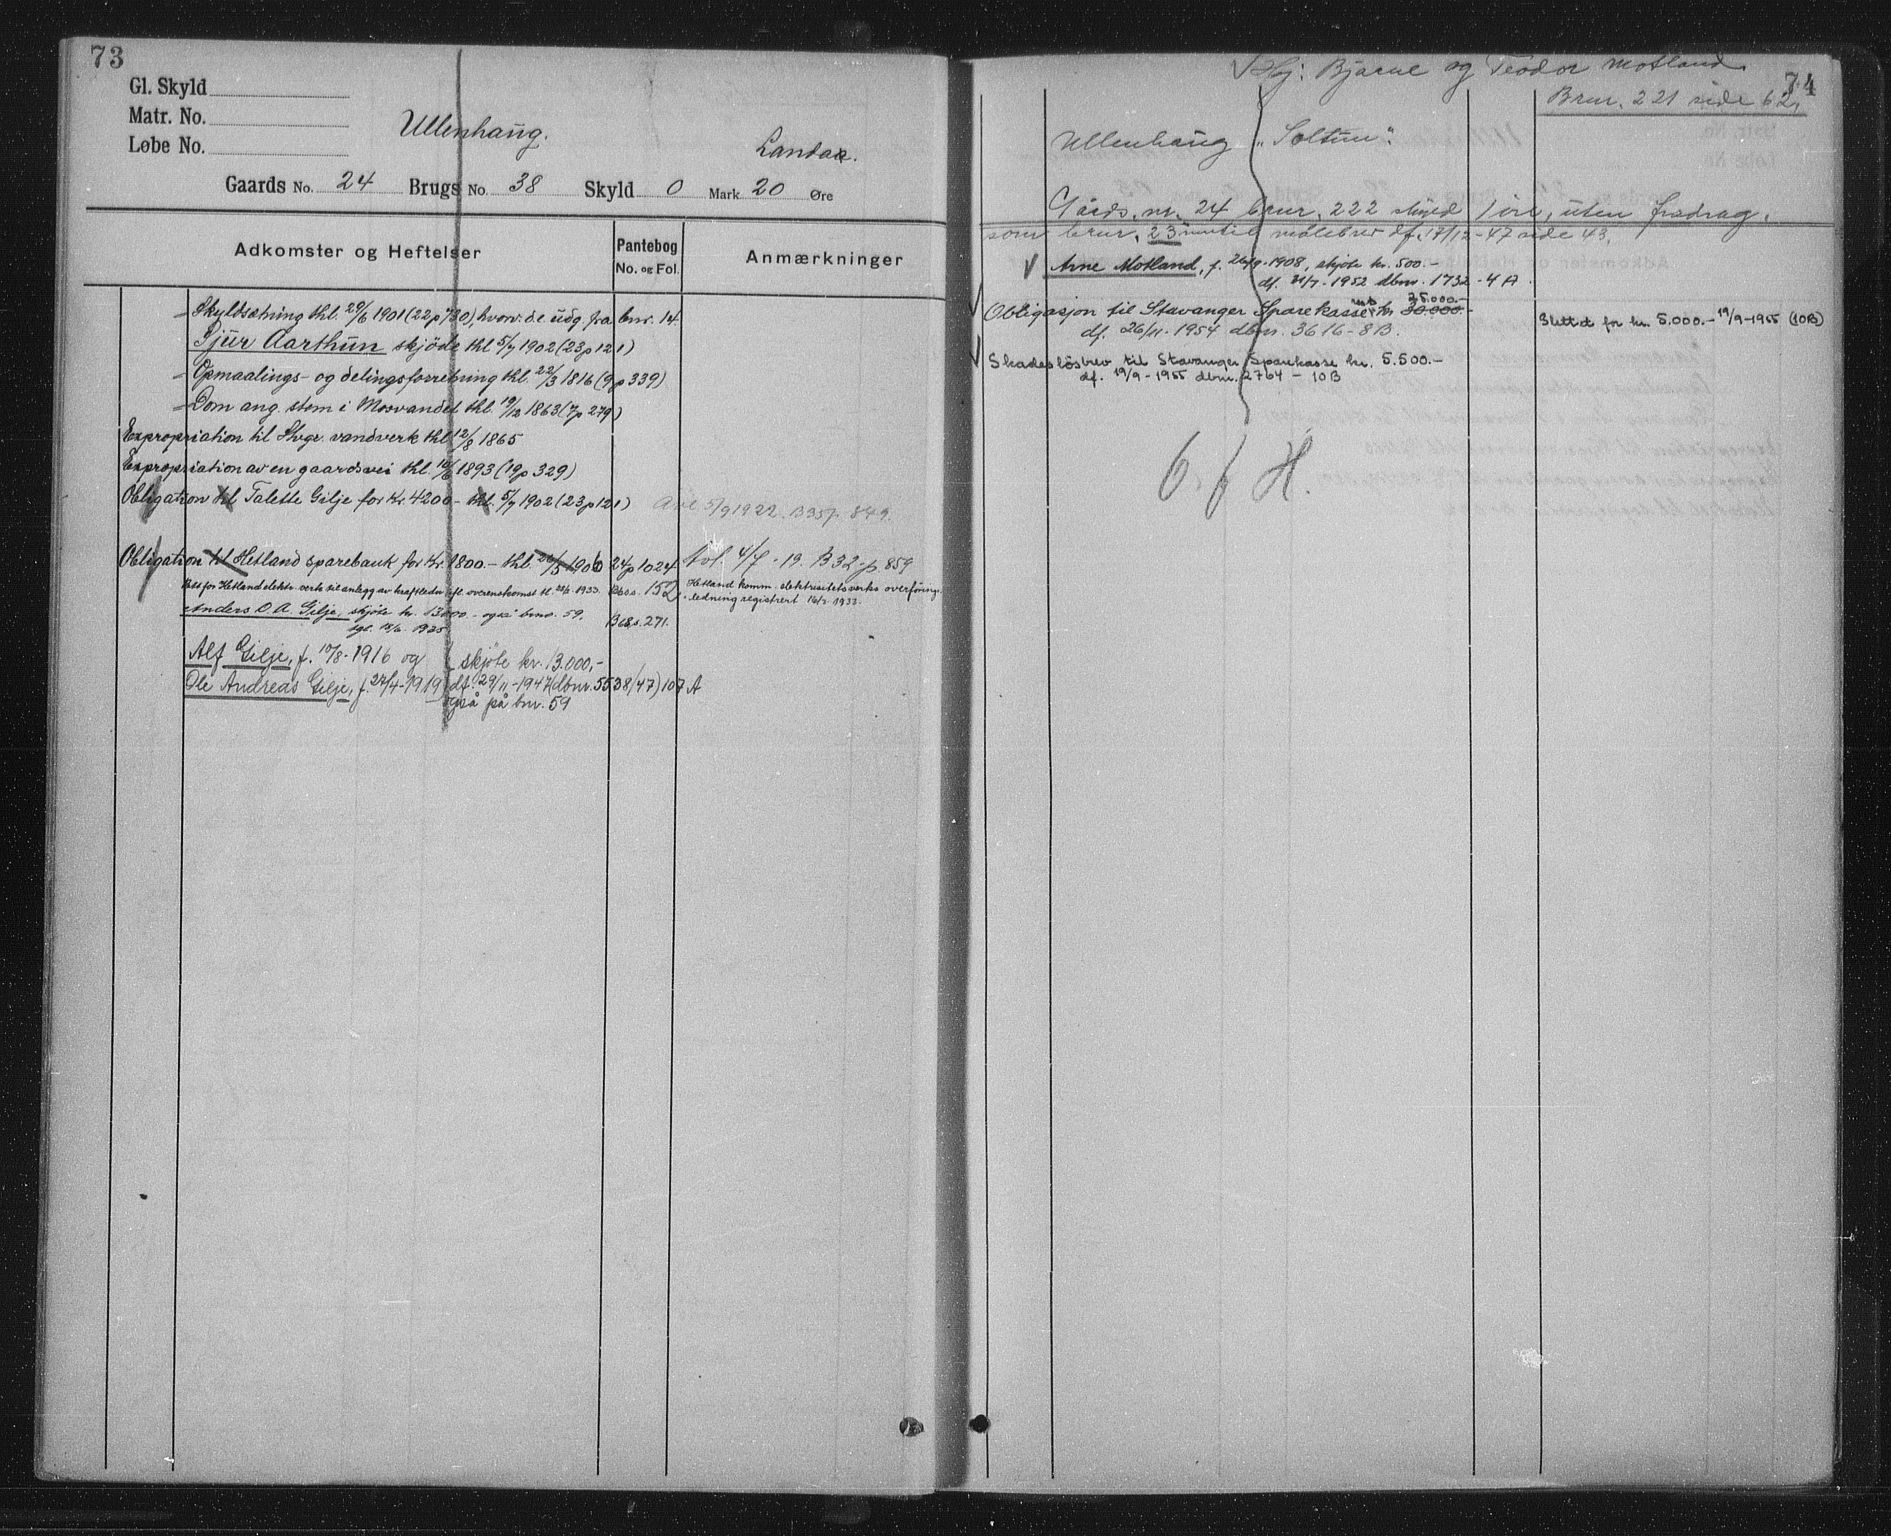 73
Gl. Skyld
Matr. No.
Løbe No.
Ullenhaug.
Gaards No. 24 Brugs No. 38 Skyld 0 Mark 20 Øre
Adkomster og Heftelser
Pantebog
No. og Fol.
Anmærkninger
Skyldsætning thl. 29/6 1901 (22 p 730), hvorv. de. udg. fra bnr. 14
Sjur Aarthun skjøde thl 5/7 1902 (23 p 121)
Opmaalings- og delingsforretning thl. 22/3 1816 (9 p 339)
Dom ang. stem i Mosvandet thl. 19/12 1863 (7 p 279)
Expropriation til Stvgr. vandverk thl 12/8 1865
Expropriation av en gaardsvei thl. 1893 (19 p 329)
Obligation til Talette Gilje for Kr. 4200- thl. 5/7 1902 (23 p 121) 5/9 1922. B 35 p. 849.
Obligation til Hetland sparebank for Kr. 1800.- thl. 1906 24 p 1024 4/7 - 19. B 32 - p. 859
for Hetland elektr. verk til anlegg av kraftledn. ifl. overenskomst tl. 1933. B 60 s. 152 Hetland komm. elektrisitetsverks overføring-
ledning registrert 16/2 1933.
Anders O. A. Gilje, skjøte kr. 13000.- også bno. 59. B 68 s. 271.
tgl. 1935
Alf Gilje, f. 10/8-1916 og skjøte kr. 13.000,-
Ole Andreas Gilje, f. 27/4-1919 df. 29/11-1947 (dbnr. 5538/47) 107 A
også på bnr. 59
74
Bjarne og Teodor Motland
Brnr. 221 side 62.
Ullenhaug "Soltun".
Gårds. nr. 24 brnr. 222 skyld 1 øre, uten fradrag.
som brnr. 23 målebrev df. 17/12-47 side 43.
Arne Motland, f. 26/9-1908, skjøte kr. 500.-
df. 1952 dbnr. 1732 - 4 A.
Obligasjon til Stavanger Sparekasse kr. 30.000.- 25.000.-
df. 26/11-1954 dbnr. 3616 - 8 B.
Slettet for kr. 5.000.- 19/9-1955 (10B)
Skadesløsbrev til Stavanger Sparekasse kr. 5.500.-
df. 19/9-1955 dbnr. 2764 - 10 B